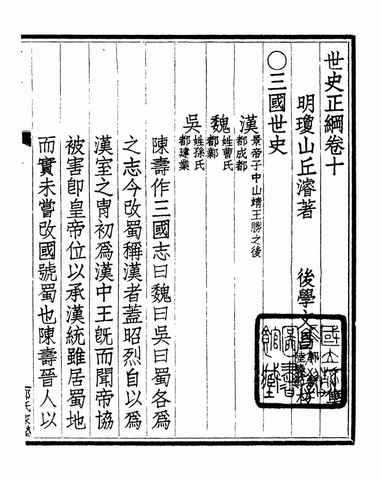 世史正綱卷十
明瓊山丘濬著 後學文昌
○三國世史
漢 景帝子中山靖王勝之後
都成都
魏 姓曹氏
都鄴
吳 姓孫氏
都建業
陳壽作三國志曰魏曰吳曰蜀各為
之志今改蜀稱漢者蓋昭烈自以為
漢室之冑初為漢中王既而聞帝協
被害即皇帝位以承漢統雖居蜀地
而實未嘗改國號蜀也陳壽晉人以